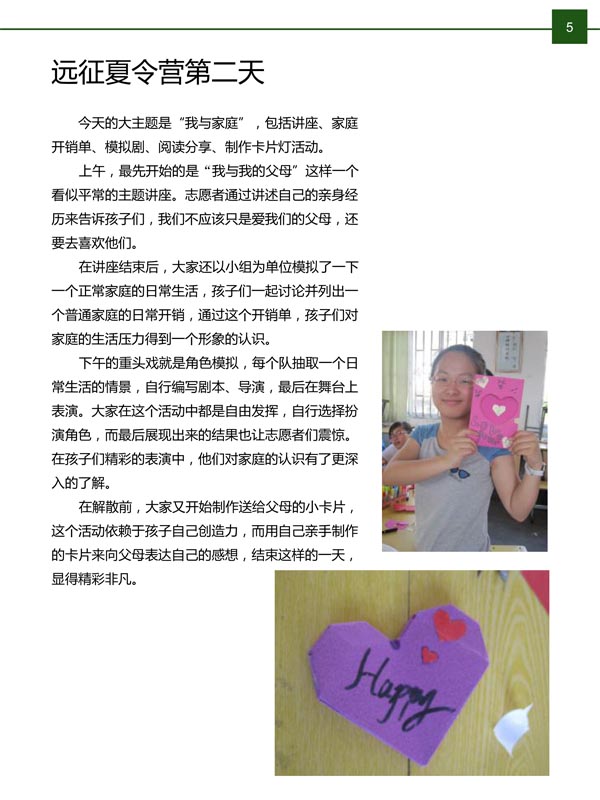 5
远征夏令营第二天
今天的大主题是“我与家庭”，包括讲座、家庭
开销单、模拟剧、阅读分享、制作卡片灯活动。
上午，最先开始的是“我与我的父母”这样一个
看似平常的主题讲座。志愿者通过讲述自己的亲身经
历来告诉孩子们，我们不应该只是爱我们的父母，还
要去喜欢他们。
在讲座结束后，大家还以小组为单位模拟了一下
一个正常家庭的日常生活，孩子们一起讨论并列出一
个普通家庭的日常开销，通过这个开销单，孩子们对
家庭的生活压力得到一个形象的认识。
下午的重头戏就是角色模拟，每个队抽取一个日
常生活的情景，自行编写剧本、导演，最后在舞台上
表演。大家在这个活动中都是自由发挥，自行选择扮
演角色，而最后展现出来的结果也让志愿者们震惊。
在孩子们精彩的表演中，他们对家庭的认识有了更深
入的了解。
在解散前，大家又开始制作送给父母的小卡片，
这个活动依赖于孩子自己创造力，而用自己亲手制作
的卡片来向父母表达自己的感想，结束这样的一天，
显得精彩非凡。
Happy